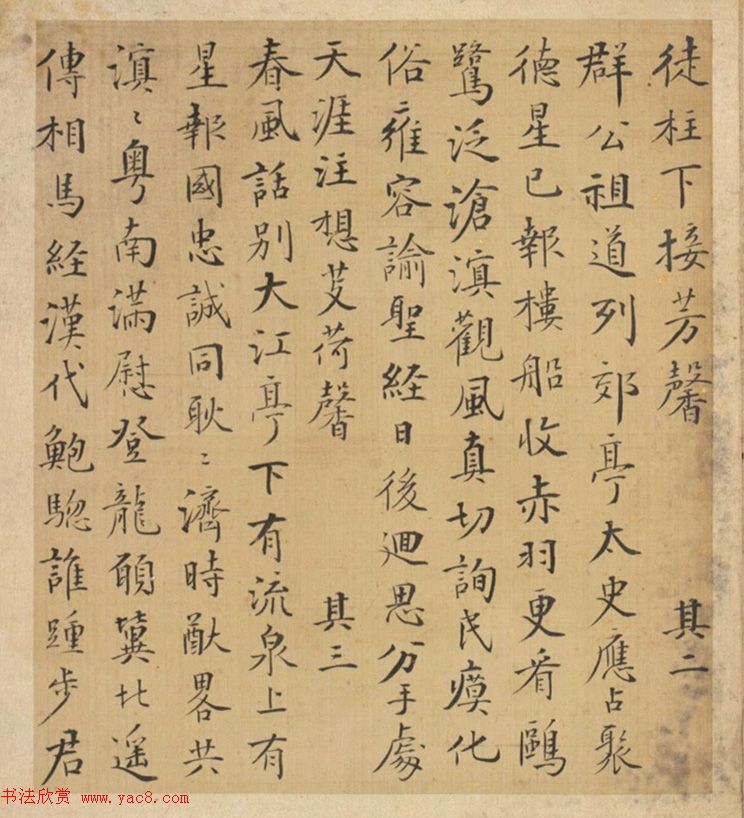 徒柱下接芳馨　其二
群公祖道列郊亭太史應占聚
德星已報樓船收赤羽更看鷗
鷺泛滄溟觀風真切詢民瘼化
俗雍容諭聖經日後迴思分手處
天涯注想芰荷馨　其三
春風話別大江亭下有流泉上有
星報國忠誠同耿〻濟時猷畧共
溟〻粤南滿慰登龍願冀北遥
傳相馬經漢代鮑驄誰踵步君
书法欣赏 www.yac8.com